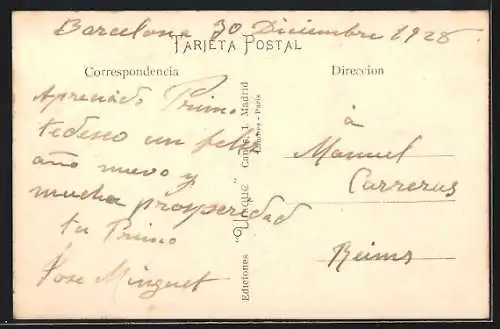 Barcelona 30 Diciembre 1928
TARJETA POSTAL
Correspondencia
Apreciado Primo
tedeseo un feliz
año nuevo y
mucha prosperidad
tu Primo
Jose Minguet
Ediciones "Unique" Caños, 1. Madrid
Londres - Paris
Direccion
à
Manuel
Carreras
Reims